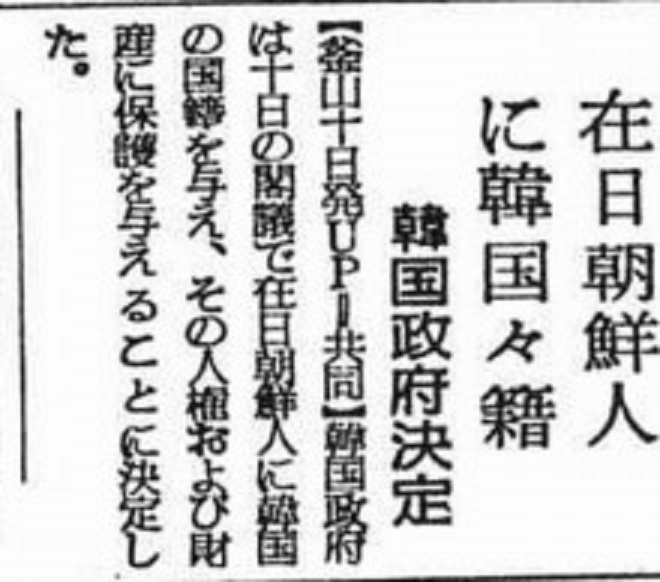 在日朝鮮人
に韓国々籍
韓国政府決定
【釜山十日発UP＝共同】韓国政府
は十日の閣議で在日朝鮮人に韓国
の国籍を与え、その人権および財
産に保護を与えることに決定し
た。